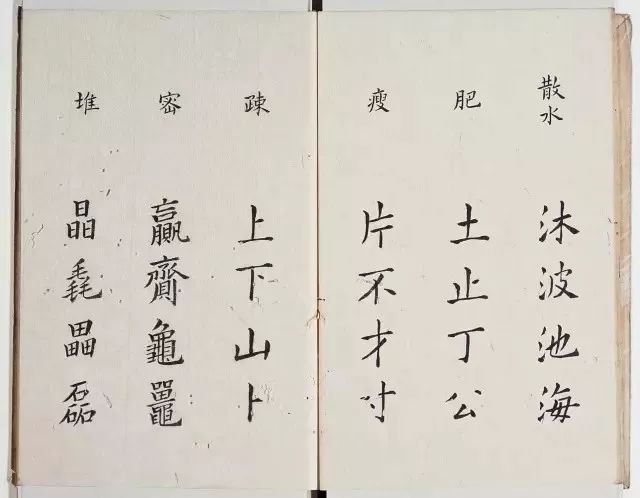 散水
沐波池海
肥
土止丁公
瘦
片不才寸
疎
上下山卜
密
贏齎龜鼉
堆
晶毳畾磊